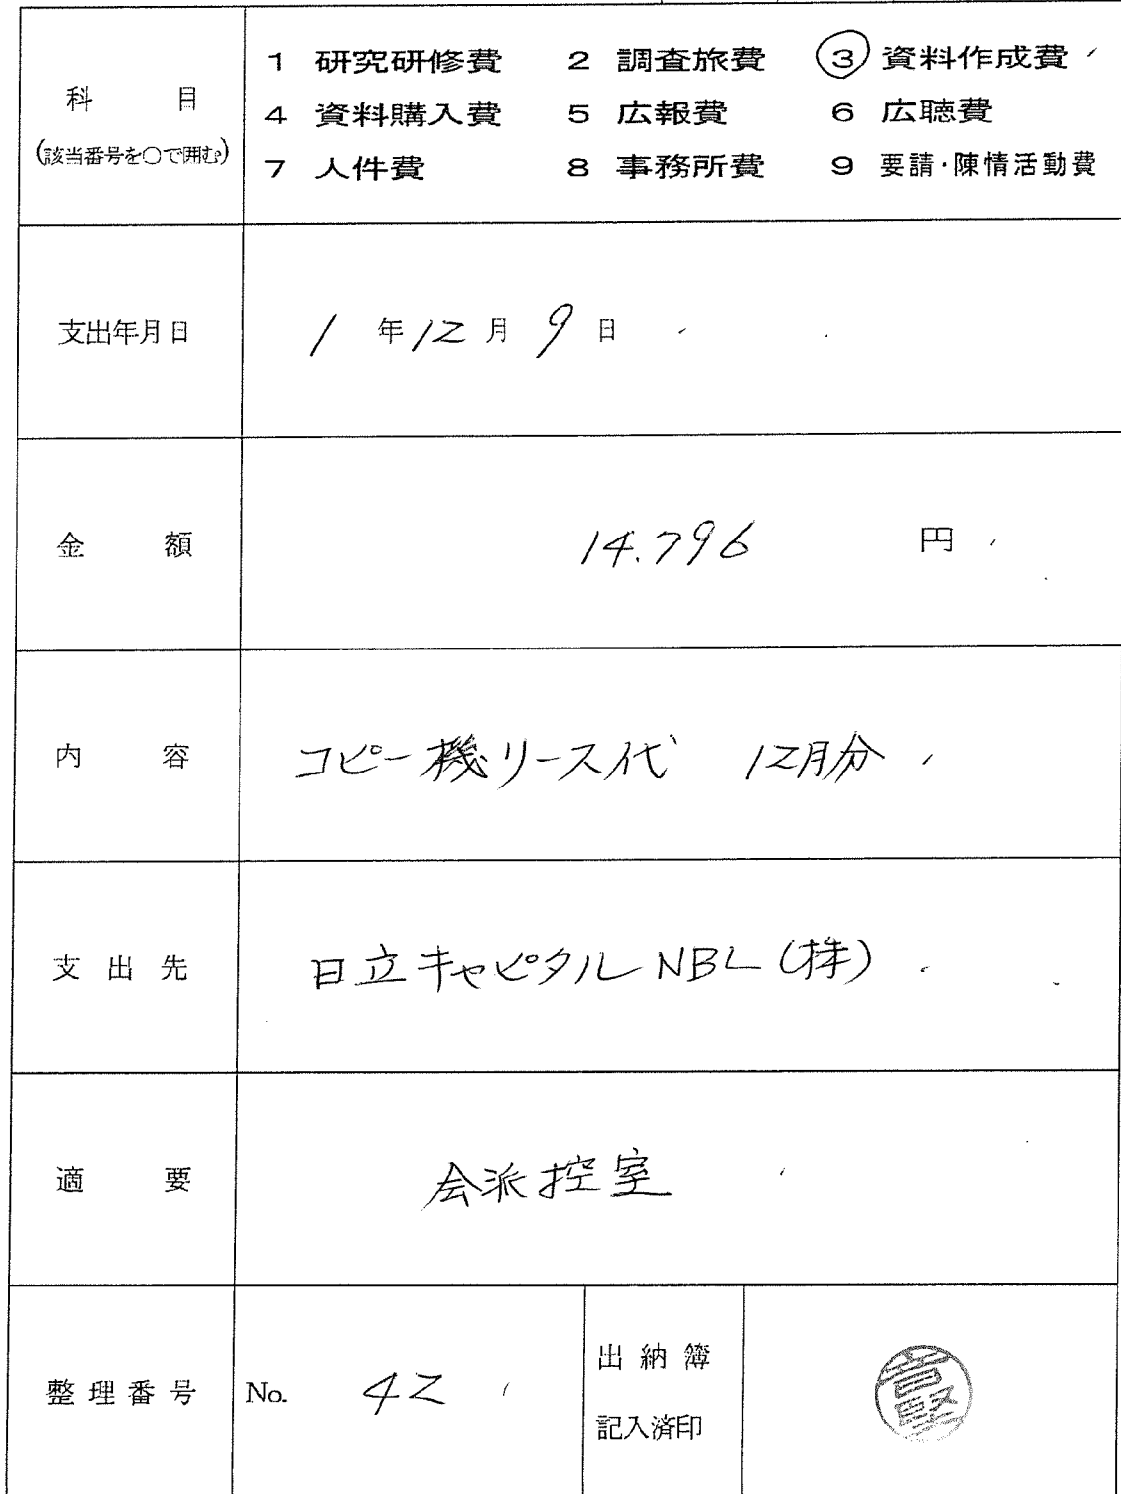 科 目
(該当番号を〇で囲む)
1 研究研修費 2 調査旅費 3 資料作成費
4 資料購入費 5 広報費 6 広聴費
7 人件費 8 事務所費 9 要請・陳情活動費
支出年月日 1 年 12 月 9 日
金 額 14.796 円
内 容 コピー機リース代 12月分
支 出 先 日立キャピタルNBL(株)
適 要 会派控室
整 理 番 号 No. 42
出 納 簿
記入済印